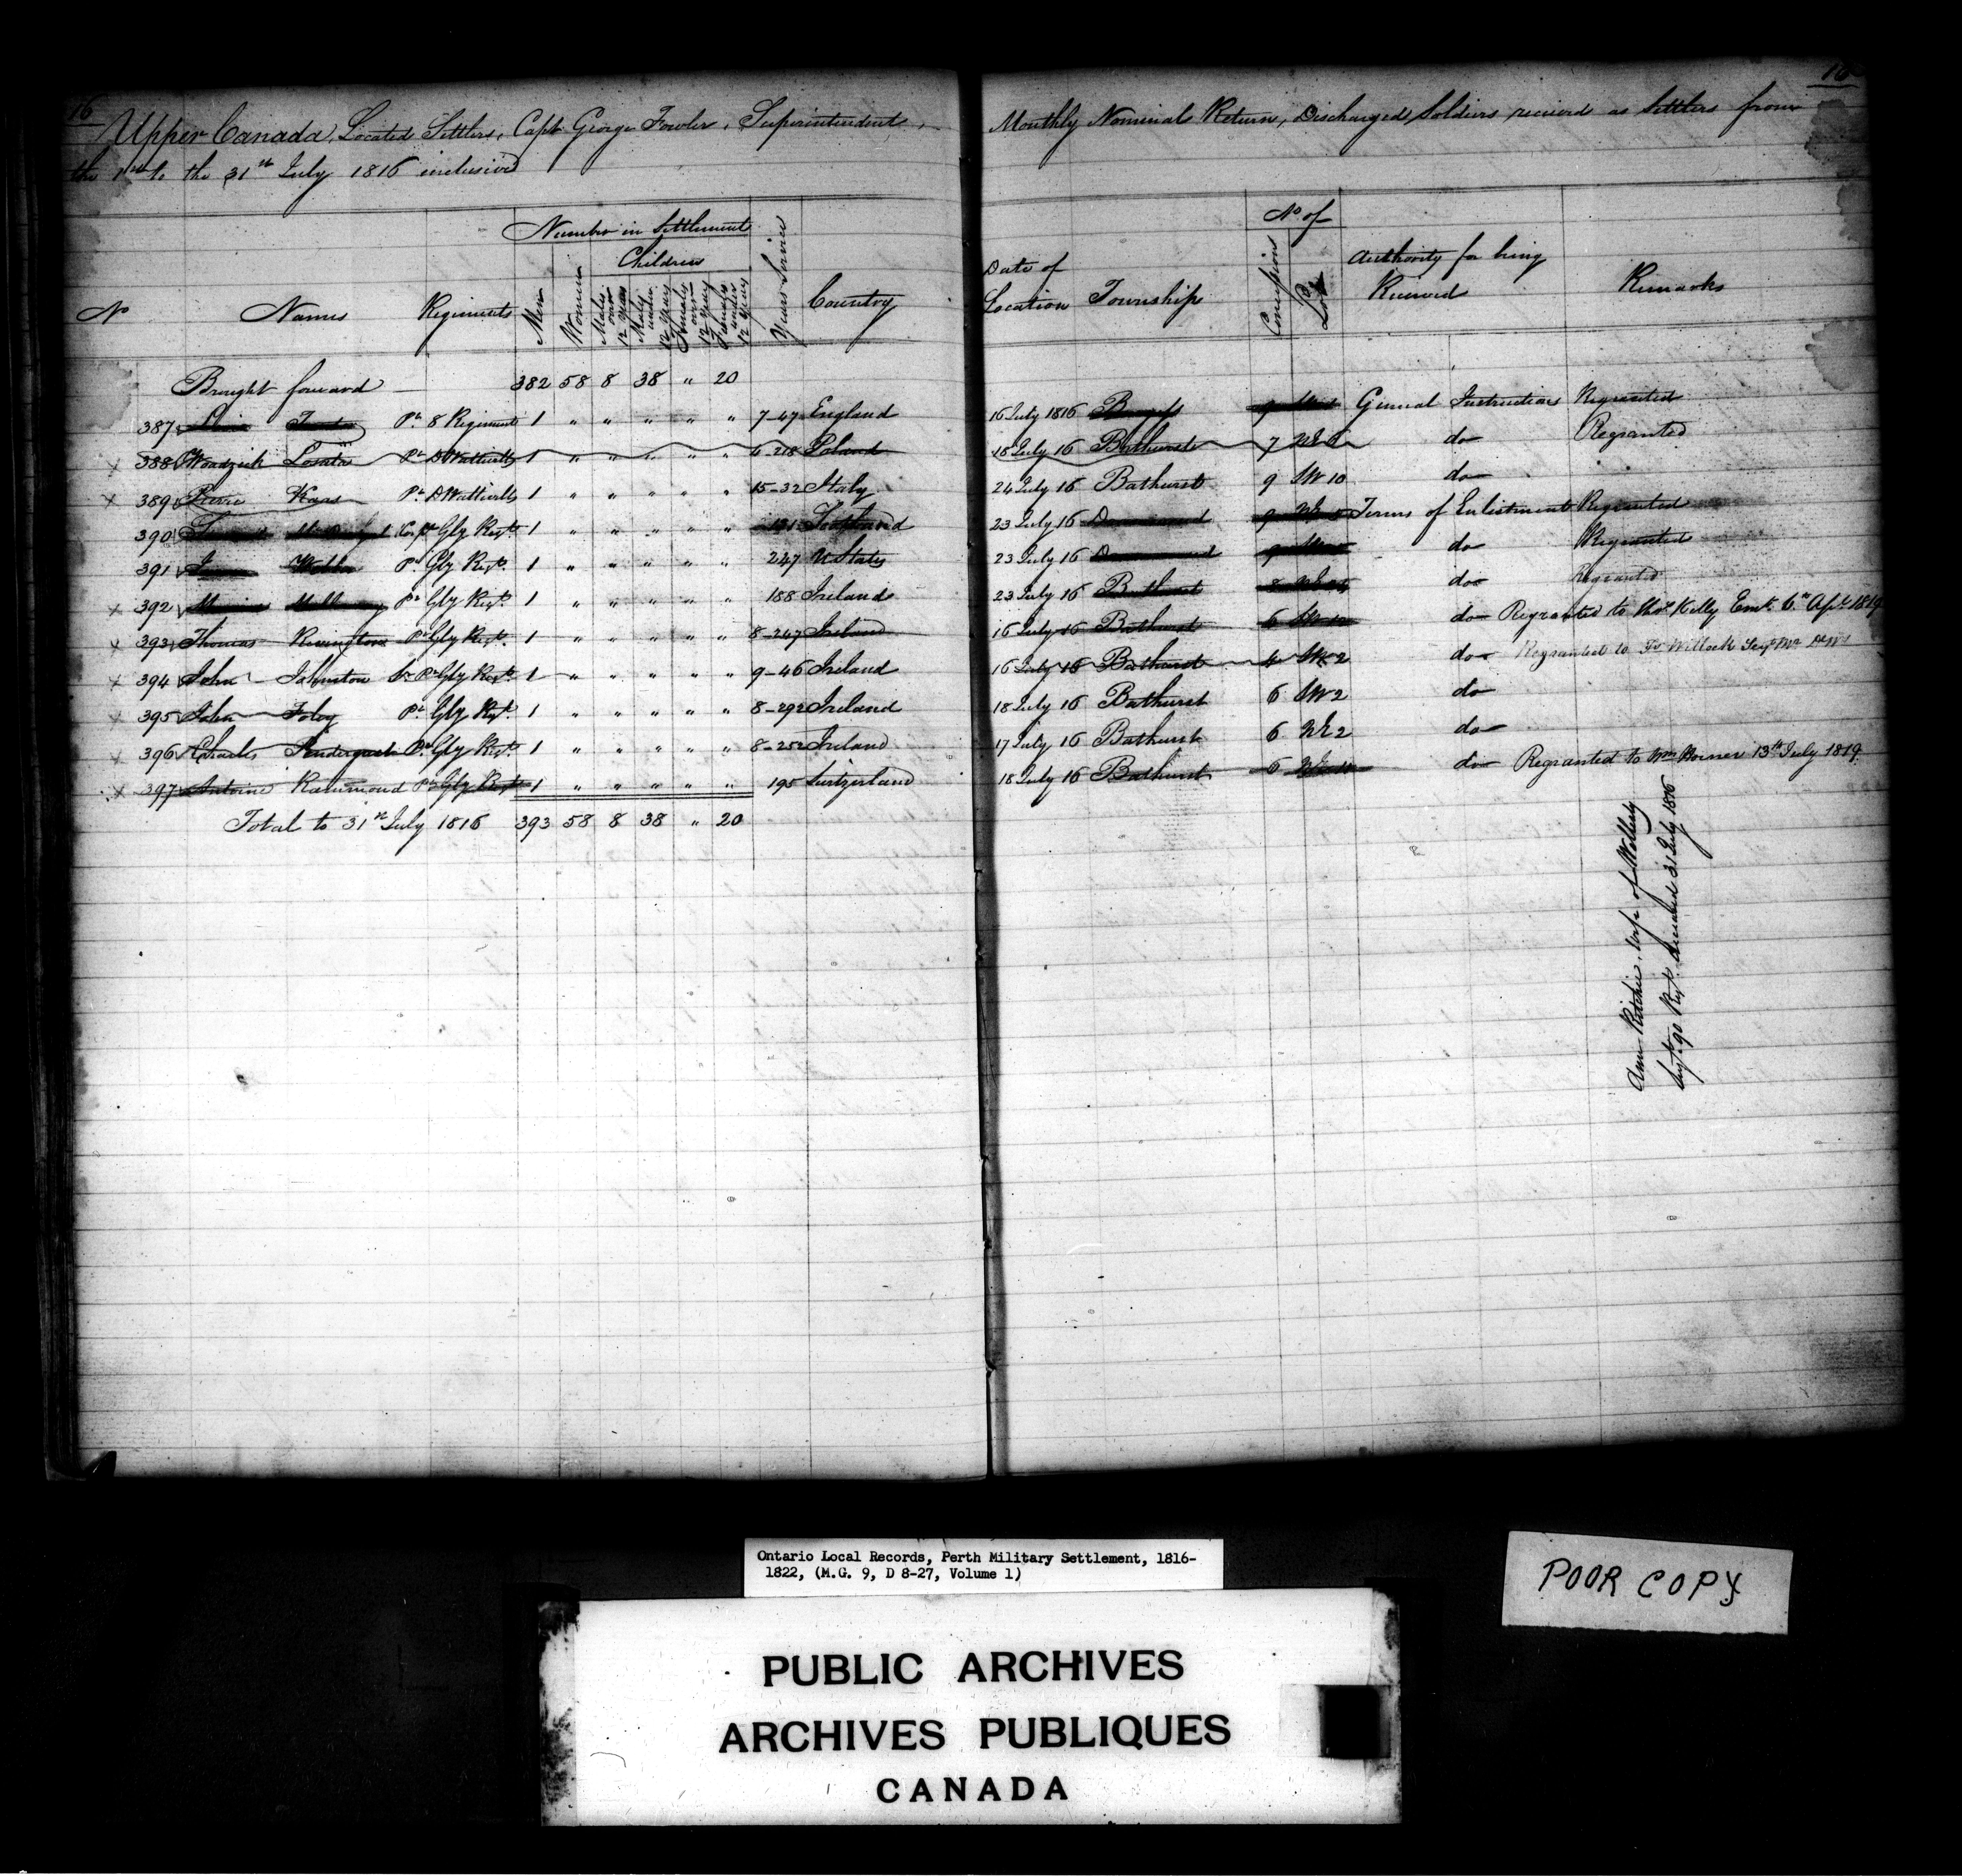 16
Upper Canada, Located Settlers, Capt George Fowler, Superintendent,
the 1st to the 31st July 1816 inclusive
Number in Settlement
Children
No Names Regiments Men Women Males over 12 years Males under 12 years Females over 12 years Females under 12 years Years Service Country
Brought forward 382 58 8 38 " 20
387 Pt 8 Regiment 1 " " " " " 7-47 England
388 Woodzick Pt DWattville 1 " " " " " 6-218 Poland
389 Pierre Pt DWattville 1 " " " " " 15-32 Italy
390 Corpl Gly Regt 1 " " " " " 131 Scotland
391 Pt Gly Regt 1 " " " " " 247 U States
392 Pt Gly Regt 1 " " " " " 188 Ireland
393 Thomas Pt Gly Regt 1 " " " " " 8-247 Ireland
394 John Johnston Pt Gly Regt 1 " " " " " 9-46 Ireland
395 John Foley Pt Gly Regt 1 " " " " " 8-292 Ireland
396 Charles Pendergast Pt Gly Regt 1 " " " " " 8-252 Ireland
397 Antoine Rammond Pt Gly Regt 1 " " " " " 195 Switzerland
Total to 31st July 1816 393 58 8 38 " 20
16
Monthly Nominal Return, Discharged Soldiers received as Settlers from
No of
Date of Location Township Concession Lot Authority for being Received Remarks
16 July 1816 9 General Instructions Regranted
18 July 16 Bathurst 7 do Regranted
24 July 16 Bathurst 9 SW 10 do
23 July 16 9 Terms of Enlistment Regranted
23 July 16 9 do Regranted
23 July 16 Bathurst 8 do Regranted
16 July 16 Bathurst 6 do Regranted to Thos Kelly Emt 6th Apl 1819
16 July 16 Bathurst 4 SW 2 do Regranted to Willock
18 July 16 Bathurst 6 SW 2 do
17 July 16 Bathurst 6 NE 2 do
18 July 16 Bathurst 6 do Regranted to Wm Horner 13th July 1819
Ann Ritchie, Wife of
90 Regt. 31 July 1816
Ontario Local Records, Perth Military Settlement, 1816-
1822, (M.G. 9, D 8-27, Volume 1)
POOR COPY
PUBLIC ARCHIVES
ARCHIVES PUBLIQUES
CANADA